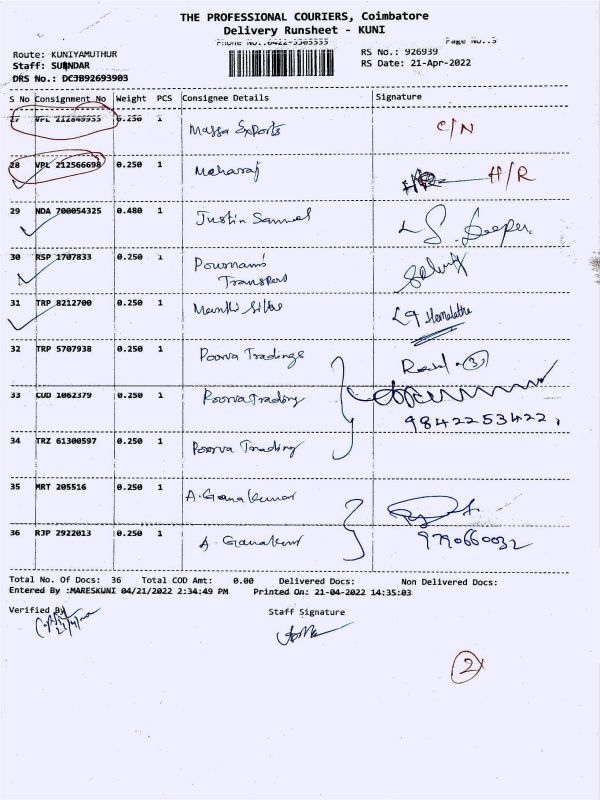 THE PROFESSIONAL COURIERS, Coimbatore
Delivery Runsheet - KUNI
Phone No.:0422-3303333 Page No.:3
Route: KUNIYAMUTHUR RS No.: 926939
Staff: SUNNDAR RS Date: 21-Apr-2022
DRS No.: DCJB92693903
S No Consignment No Weight PCS Consignee Details Signature
27 VPL 212849935 0.250 1 Massa Exports C/N
28 VPL 212566698 0.250 1 Maharaj H/R
29 NDA 700054325 0.480 1 Justin Samuel
30 RSP 1707833 0.250 1 Pournami Transport
31 TRP 8212700 0.250 1 Hemalatha
32 TRP 5707938 0.250 1 Poorva Tradings
33 CUD 1062379 0.250 1 Poorva Trading 9842253422
34 TRZ 61300597 0.250 1 Poorva Trading
35 MRT 205516 0.250 1 A. Gana Kumar
36 RJP 2922013 0.250 1 9790660032
Total No. Of Docs: 36 Total COD Amt: 0.00 Delivered Docs: Non Delivered Docs:
Entered By :MARESKUNI 04/21/2022 2:34:49 PM Printed On: 21-04-2022 14:35:03
Verified By Staff Signature
2